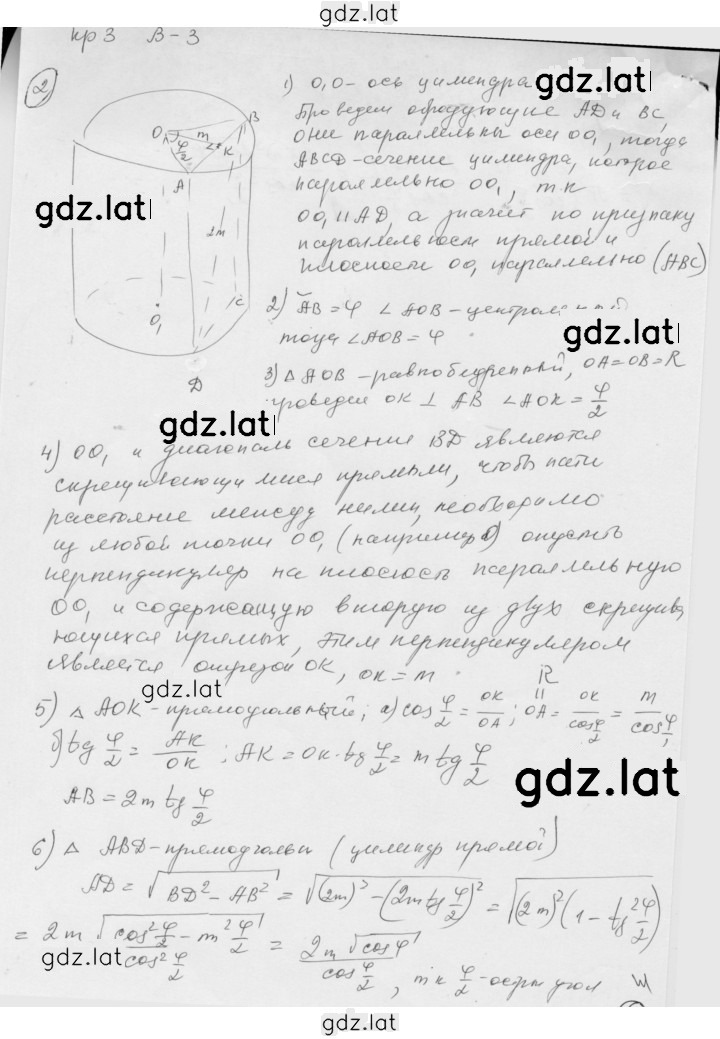 gdz.lati
кр 3 В-3
2
1) O,O- ось цилиндра
gdz.lati
Проведем образующие AD и BC,
они параллельны оси OO₁, тогда
ABCD-сечение цилиндра, которое
параллельно OO₁, т к
OO₁ || AD, а значит по признаку
параллельности прямой и
плоскости OO₁ параллельно (ABC)
O
φ/2
m
K
B
A
gdz.lati
2m
C
O₁
D
2) ‿AB = φ ∠AOB - централь
gdz.lati
тогда ∠AOB = φ
3) △AOB - равнобедренный, OA=OB=R
gdz.lati
проведем OK ⊥ AB ∠AOK = φ/2
4) OO₁ и диагональ сечения BD являются
скрещивающимися прямыми, чтобы найти
расстояние между ними, необходимо
из любой точки OO₁ (например O) опустить
перпендикуляр на плоскость параллельную
OO₁ и содержащую вторую из двух скрещив
ающихся прямых, этим перпендикуляром
является отрезок OK, OK = m
gdz.lati
5) △ AOK - прямоугольный; а) cos φ/2 = OK/OA; OA = R = OK/cos φ/2 = m/cos φ/2;
б) tg φ/2 = AK/OK; AK = OK·tg φ/2 = m tg φ/2
gdz.lati
AB = 2m tg φ/2
6) △ ABD - прямоугольн (цилиндр прямой)
AD = √(BD² - AB²) = √((2m)² - (2m tg φ/2)²) = √((2m)²(1 - tg² φ/2))
= 2m √(cos² φ/2 - m² φ/2)/cos² φ/2 = 2m √cos φ / cos φ/2, т к φ/2 - остр угол
gdz.lati
gdz.lati